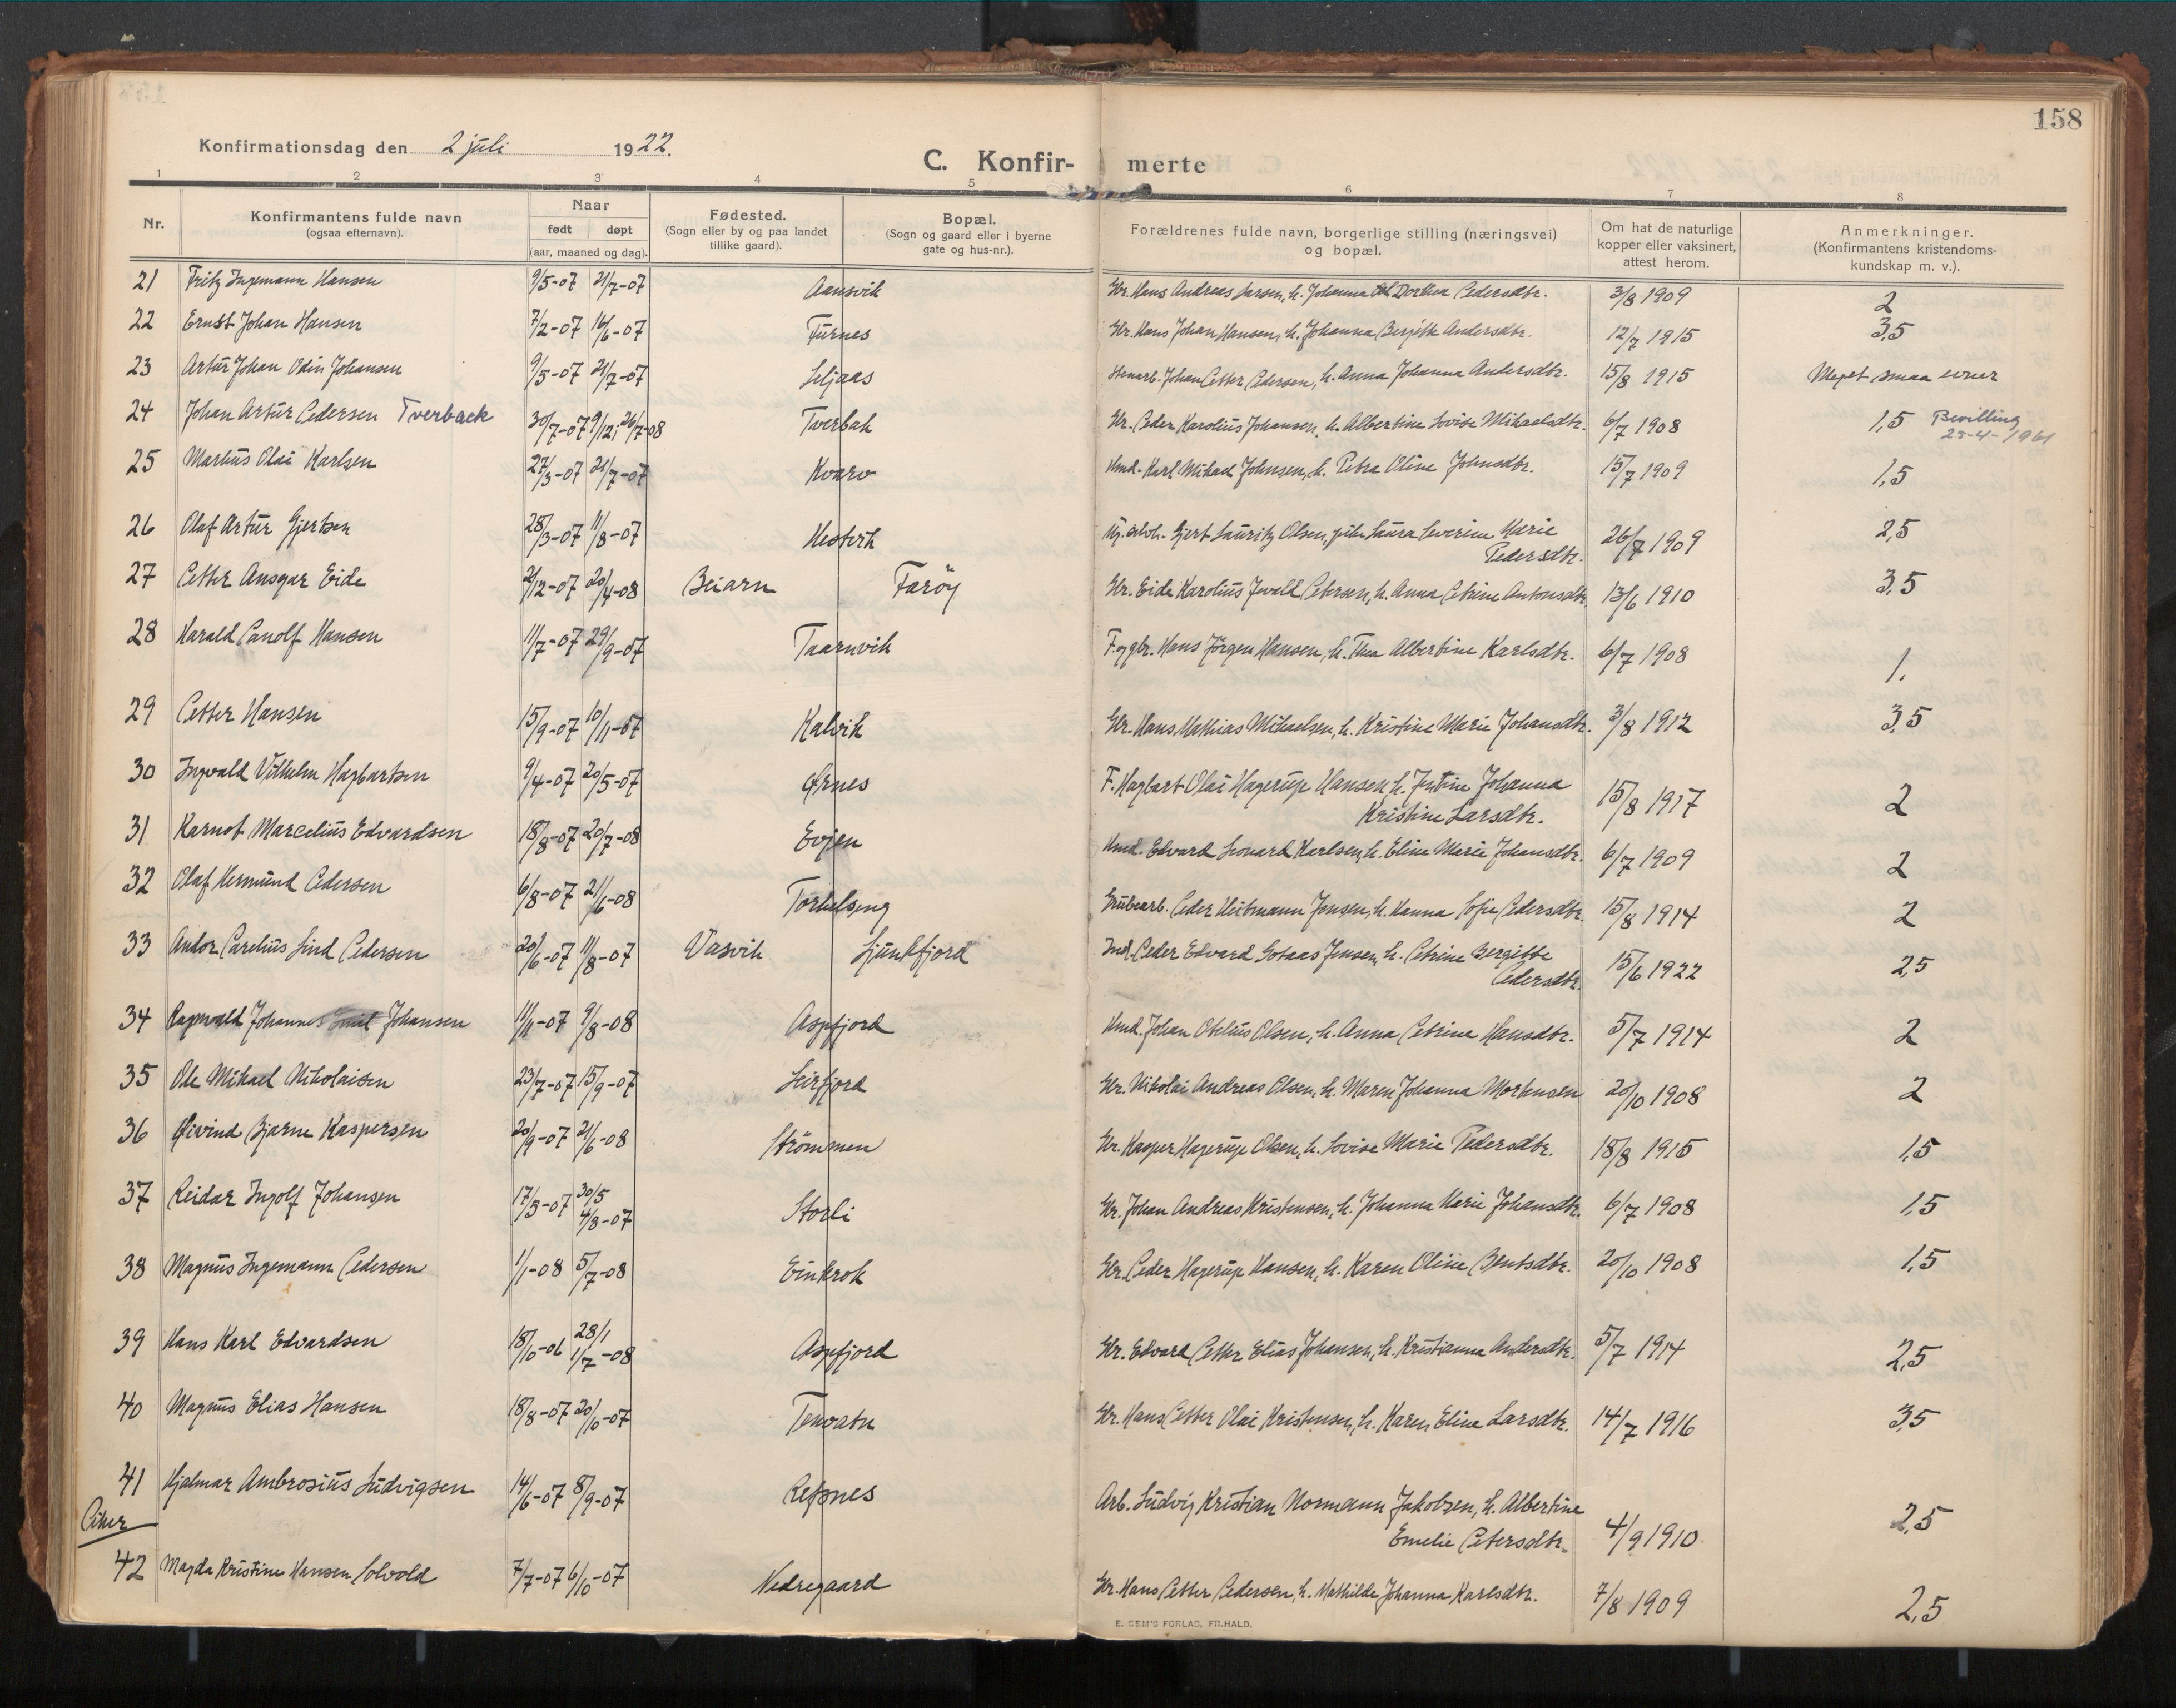 158
Konfirmationsdag den 2 juli 1922.
C. Konfir- merte
1 2 3 4 5 6 7 8
Nr.
Konfirmantens fulde navn
(ogsaa efternavn).
Naar
født døpt
(aar, maaned og dag).
Fødested.
(Sogn eller by og paa landet
tillike gaard).
Bopæl.
(Sogn og gaard eller i byerne
gate og hus-nr.).
Forældrenes fulde navn, borgerlige stilling (næringsvei)
og bopæl.
Om hat de naturlige
kopper eller vaksinert,
attest herom.
Anmerkninger.
(Konfirmantens kristendoms-
kundskap m. v.).
21 Fritz Ingemann Hansen 9/5-07 21/7-07 Aansvik Gbr. Hans Andreas Larsen, h. Johanna Dorthea Pedersdtr. 3/8 1909 2
22 Ernst Johan Hansen 7/2-07 16/6-07 Furnes Gbr. Hans Johan Hansen, h. Johanna Bergitte Andersdtr. 12/7 1915 3,5
23 Artur Johan Odin Johansen 9/5-07 21/7-07 Seljaas Stenarb. Johan Petter Pedersen, h. Anna Johanna Andersdtr. 15/8 1915 Meget smaa evner
24 Johan Artur Pedersen Tverback 30/7-07 9/12, 26/7-08 Tverbak Gbr. Peder Karolius Johansen, h. Albertine Lovise Mikaelsdtr. 6/7 1908 1,5 Bevilling
25-4-1961
25 Markus Olai Karlsen 27/3-07 21/7-07 Kvarv Hmd. Karl Mikael Johnsen, h. Petra Oline Johnsdtr. 15/7 1909 1,5
26 Olaf Artur Gjertsen 28/3-07 11/8-07 Hestvik Gjert Lauritz Olsen, Laura Severine Marie
Pedersdtr. 26/7 1909 2,5
27 Petter Ansgar Eide 2/12-07 20/4-08 Beiarn Farøy Gbr. Eide Karolius Jvald Petersen, h. Anna Petrine Antonsdtr. 13/6 1910 3,5
28 Harald Panolf Hansen 11/7-07 29/9-07 Taarnvik F. og gbr. Hans Jörgen Hansen, h. Thea Albertine Karlsdtr. 6/7 1908 1.
29 Petter Hansen 15/9-07 10/11-07 Kalvik Gbr. Hans Mathias Mikaelsen, h. Kristine Marie Johansdtr. 3/8 1912 3,5
30 Ingvald Vilhelm Hagbartsen 9/4-07 20/5-07 Ørnes F. Hagbart Olai Hagerup Hansen, h. Jentine Johanna
Kristine Larsdtr. 15/8 1917 2
31 Karnot Marcelius Edvardsen 18/8-07 20/7-08 Evjen Hmd. Edvard Leonard Karlsen, h. Eline Marie Johansdtr. 6/7 1909 2
32 Olaf Hermund Pedersen 6/8-07 21/6-08 Torkelseng Grubearb. Peder Heitmann Jensen, h. Hanna Sofie Pedersdtr. 15/8 1914 2
33 Andor Parelius Lind Pedersen 20/6-07 11/8-07 Vasvik Ljunkfjord Ind. Peder Edvard Gotaas Jensen, h. Petrine Bergitte
Pedersdtr. 15/6 1922 2,5
34 Ragnvald Johannes Emil Johansen 11/11-07 9/8-08 Aspfjord Hmd. Johan Obelius Olsen, h. Anna Petrine Hansdtr. 5/7 1914 2
35 Ole Mikael Nikolaisen 23/7-07 15/9-07 Leirfjord Gbr. Nikolai Andreas Olsen, h. Maren Johanna Mortensen 20/10 1908 2
36 Øivind Bjarne Kaspersen 20/9-07 21/6-08 Strömmen Gbr. Kasper Hagerup Olsen, h. Lovise Marie Pedersdtr. 18/8 1915 1,5
37 Reidar Ingolf Johansen 17/3-07 30/5
4/8-07 Storli Gbr. Johan Andreas Kristensen, h. Johanna Marie Johansdtr. 6/7 1908 1,5
38 Magnus Ingemann Pedersen 1/1-08 5/7-08 Einkrok Gbr. Peder Hagerup Hansen, h. Karen Oline Bentsdtr. 20/10 1908 1,5
39 Hans Karl Edvardsen 18/10-06 28/1
1/7-08 Aspfjord Gbr. Edvard Petter Elias Johansen, h. Kristianna Andersdtr. 5/7 1914 2,5
40 Magnus Elias Hansen 18/8-07 20/10-07 Tenvatn Gbr. Hans Petter Olai Kristensen, h. Karen Eline Larsdtr. 14/7 1916 3,5
41 Hjalmar Ambrosius Ludvigsen 14/6-07 8/9-07 Refsnes Arb. Ludvig Kristian Normann Jakobsen, h. Albertine
Emelie Petersdtr. 4/9 1910 2,5
Piker
42 Magda Kristine Hansen Solvold 7/7-07 6/10-07 Nedregaard Gbr. Hans Petter Pedersen, h. Mathilde Johanna Karlsdtr. 7/8 1909 2,5
E. SEM'S FORLAG, FR.HALD.